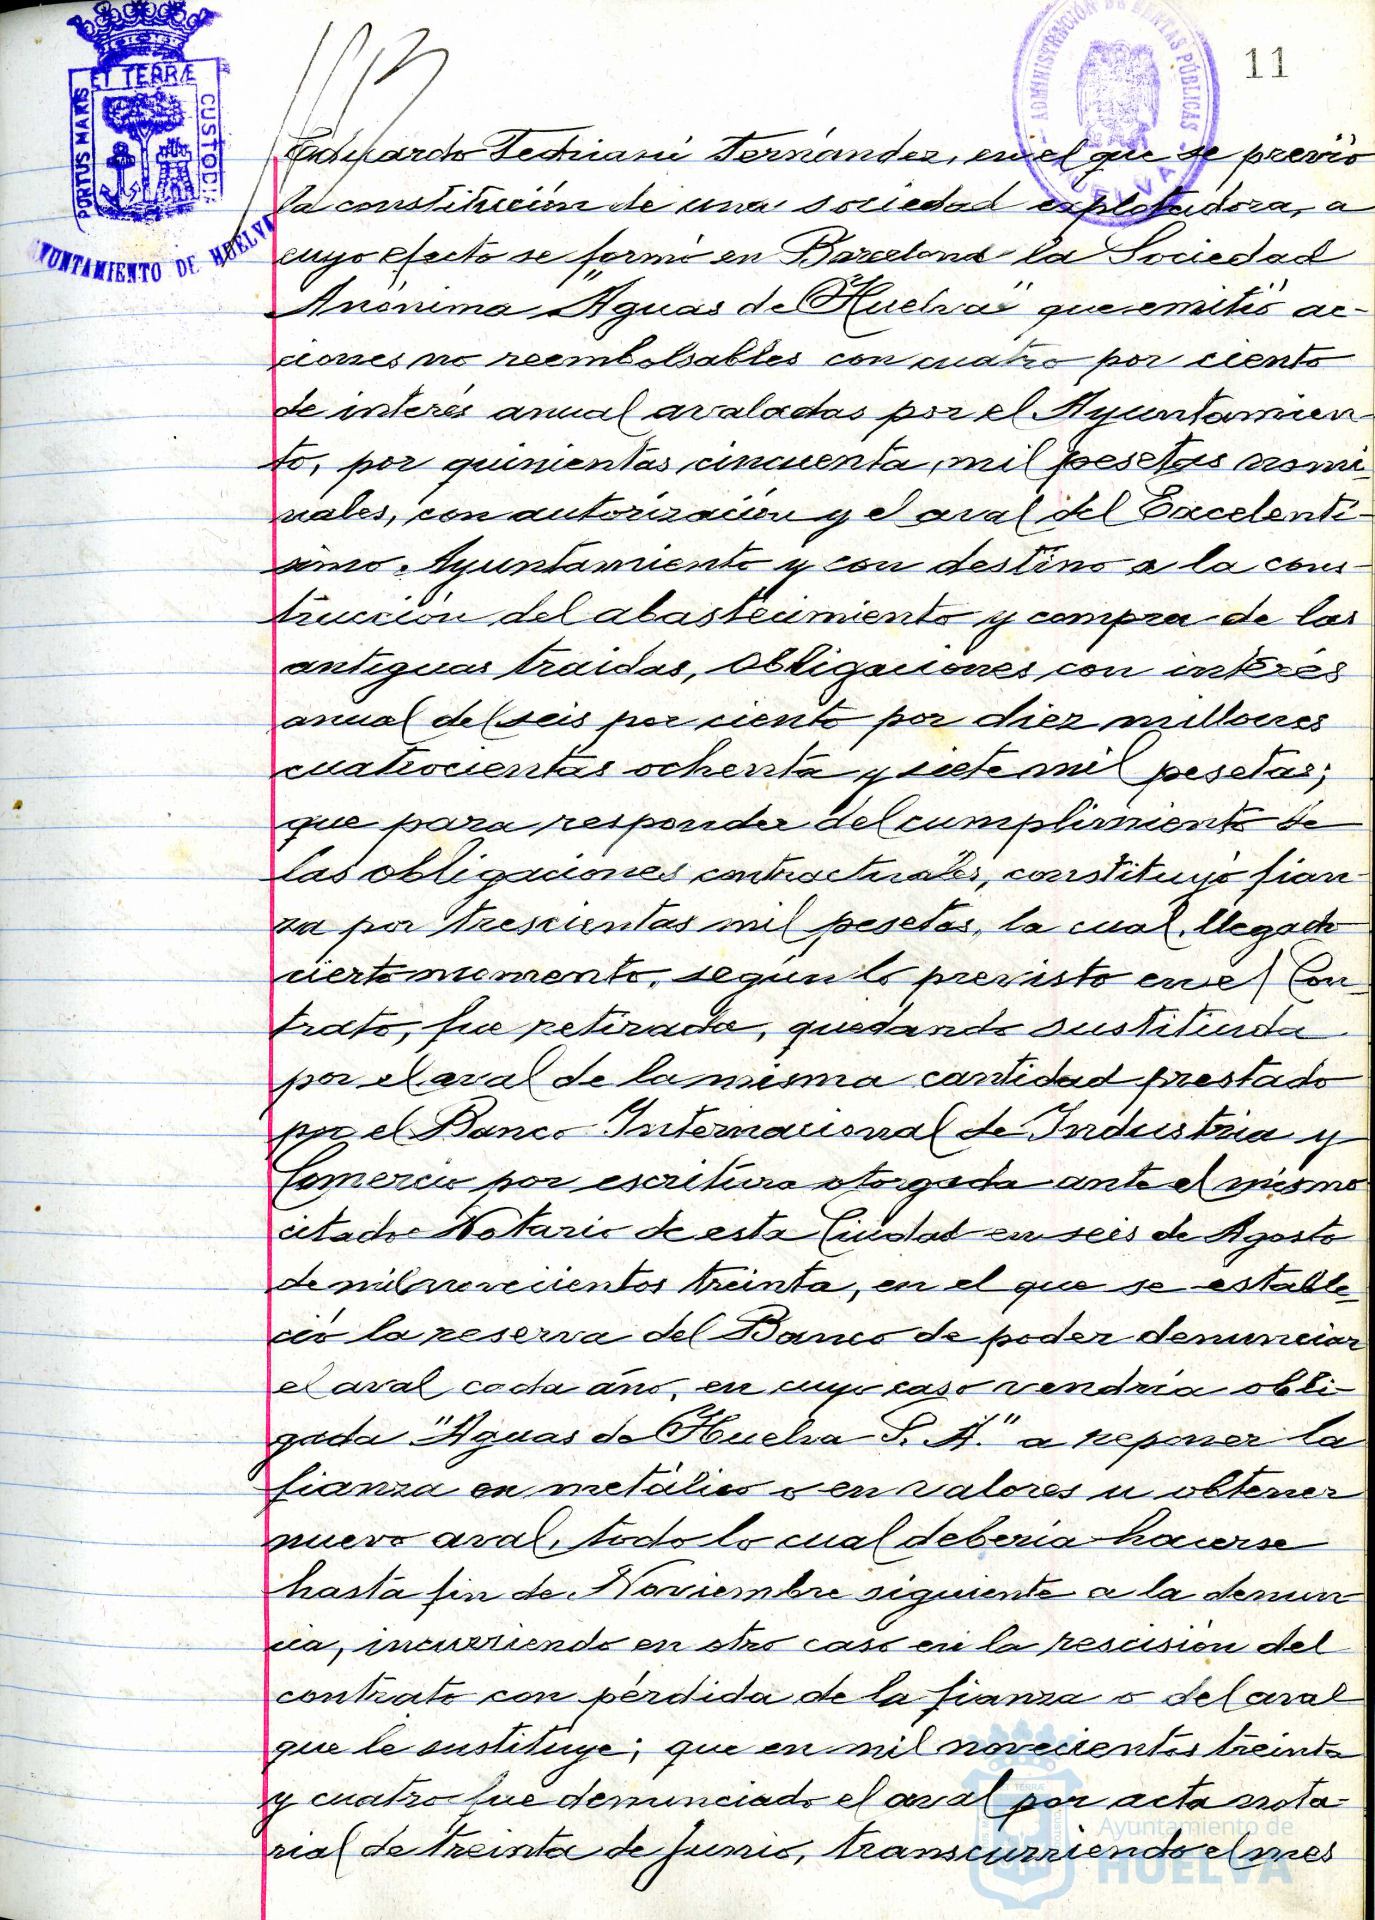 PORTUS MARIS ET TERRÆ CUSTODIA
AYUNTAMIENTO DE HUELVA
ADMINISTRACIÓN DE RENTAS PÚBLICAS
HUELVA
11
Eduardo Fernández, en el que se previó
la constitución de una sociedad explotadora, a
cuyo efecto se formó en Barcelona la Sociedad
Anónima "Aguas de Huelva" que emitió ac-
ciones no reembolsables con cuatro por ciento
de interés anual avaladas por el Ayuntamien-
to, por quinientas cincuenta mil pesetas nomi-
nales, con autorización y el aval del Excelentí-
simo Ayuntamiento y con destino a la cons-
trucción del abastecimiento y compra de las
antiguas traidas, obligaciones con interés
anual del seis por ciento por diez millones
cuatrocientas ochenta y siete mil pesetas;
que para responder del cumplimiento de
las obligaciones contractuales, constituyó fian-
za por trescientas mil pesetas, la cual, llegado
cierto momento, según lo previsto en el Con-
trato, fue retirada, quedando sustituida
por el aval de la misma cantidad prestado
por el Banco Internacional de Industria y
Comercio por escritura otorgada ante el mismo
citado Notario de esta Ciudad en seis de Agosto
de mil novecientos treinta, en el que se estable-
ció la reserva del Banco de poder denunciar
el aval cada año, en cuyo caso vendría obli-
gada "Aguas de Huelva S. A." a reponer la
fianza en metálico o en valores u obtener
nuevo aval, todo lo cual debería hacerse
hasta fin de Noviembre siguiente a la denun-
cia, incurriendo en otro caso en la rescisión del
contrato con pérdida de la fianza o del aval
que le sustituye; que en mil novecientos treinta
y cuatro fue denunciado el aval por acta nota-
rial de treinta de Junio, transcurriendo el mes
Ayuntamiento de
HUELVA